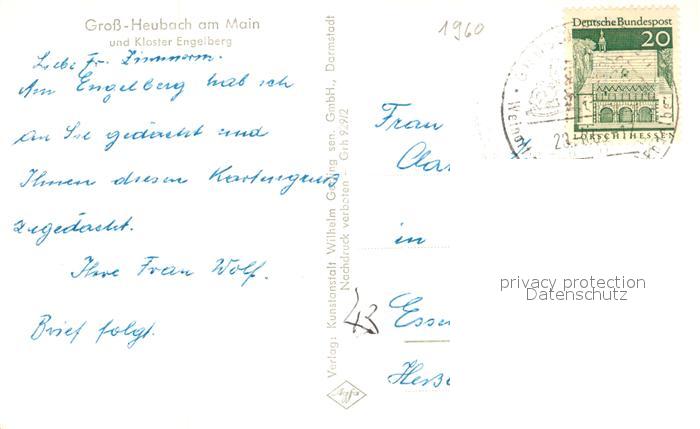 Groß-Heubach am Main
und Kloster Engelberg
Liebe Fr. Zimmerm.
Am Engelberg hab ich
an Sie gedacht und
Ihnen diesen Kartengruß
zugedacht.
Ihre Frau Wolf.
Brief folgt.
Verlag: Kunstanstalt Wilhelm Gerling sen. GmbH., Darmstadt
Nachdruck verboten - Grh 9/9/2
1960
Deutsche Bundespost
20
LORSCH/HESSEN
Frau
in
43
privacy protection
Datenschutz